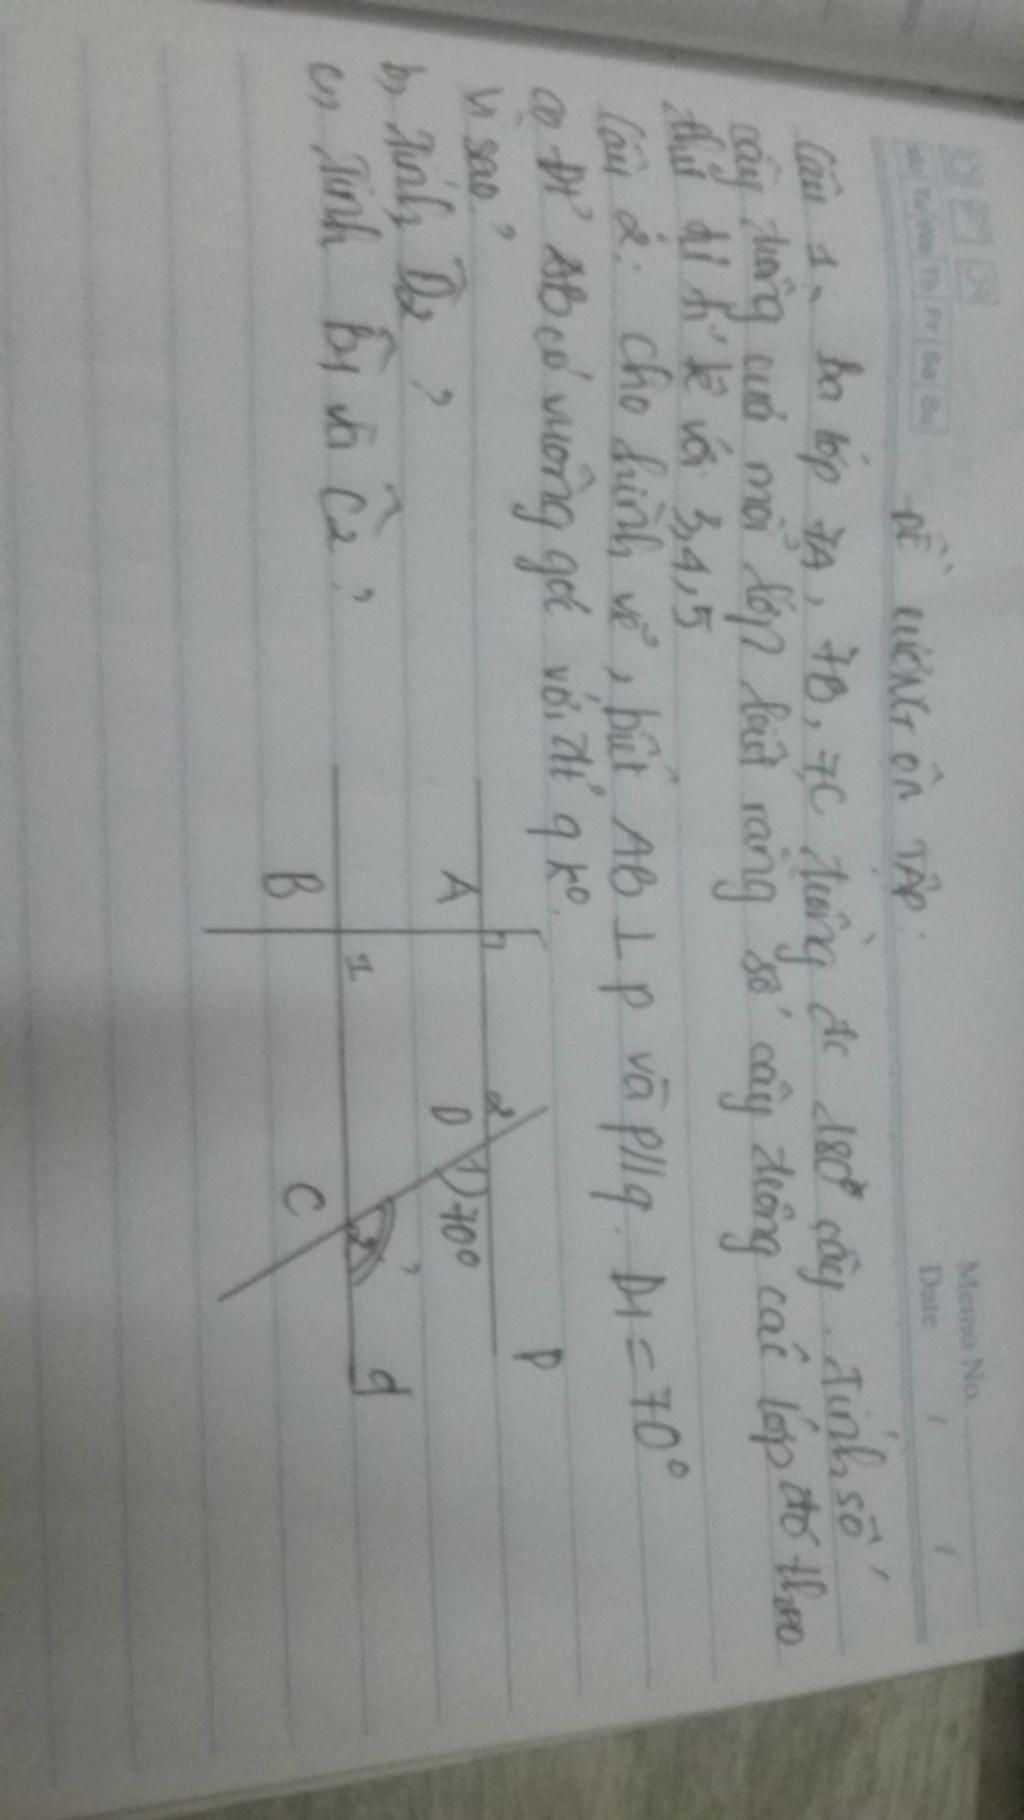 Memo No.
Date / /
Mo Tu We Th Fr Sa Su
ĐỀ CƯƠNG ÔN TẬP.
Câu 1, ba lớp 7A, 7B, 7C trồng đc 180 cây. Tính số
cây trồng của mỗi lớp biết rằng số cây trồng các lớp đó theo
thứ tự tỉ lệ với 3,4,5
Câu 2: Cho hình vẽ, biết AB ⊥ p và p//q. D1 = 70°
a, Đt' AB có vuông góc với đt' q ko.
vì sao?
b, Tính D̂2?
c, Tính B̂1 và Ĉ2?
A
2
D
1
70°
p
B
1
C
2
?
q